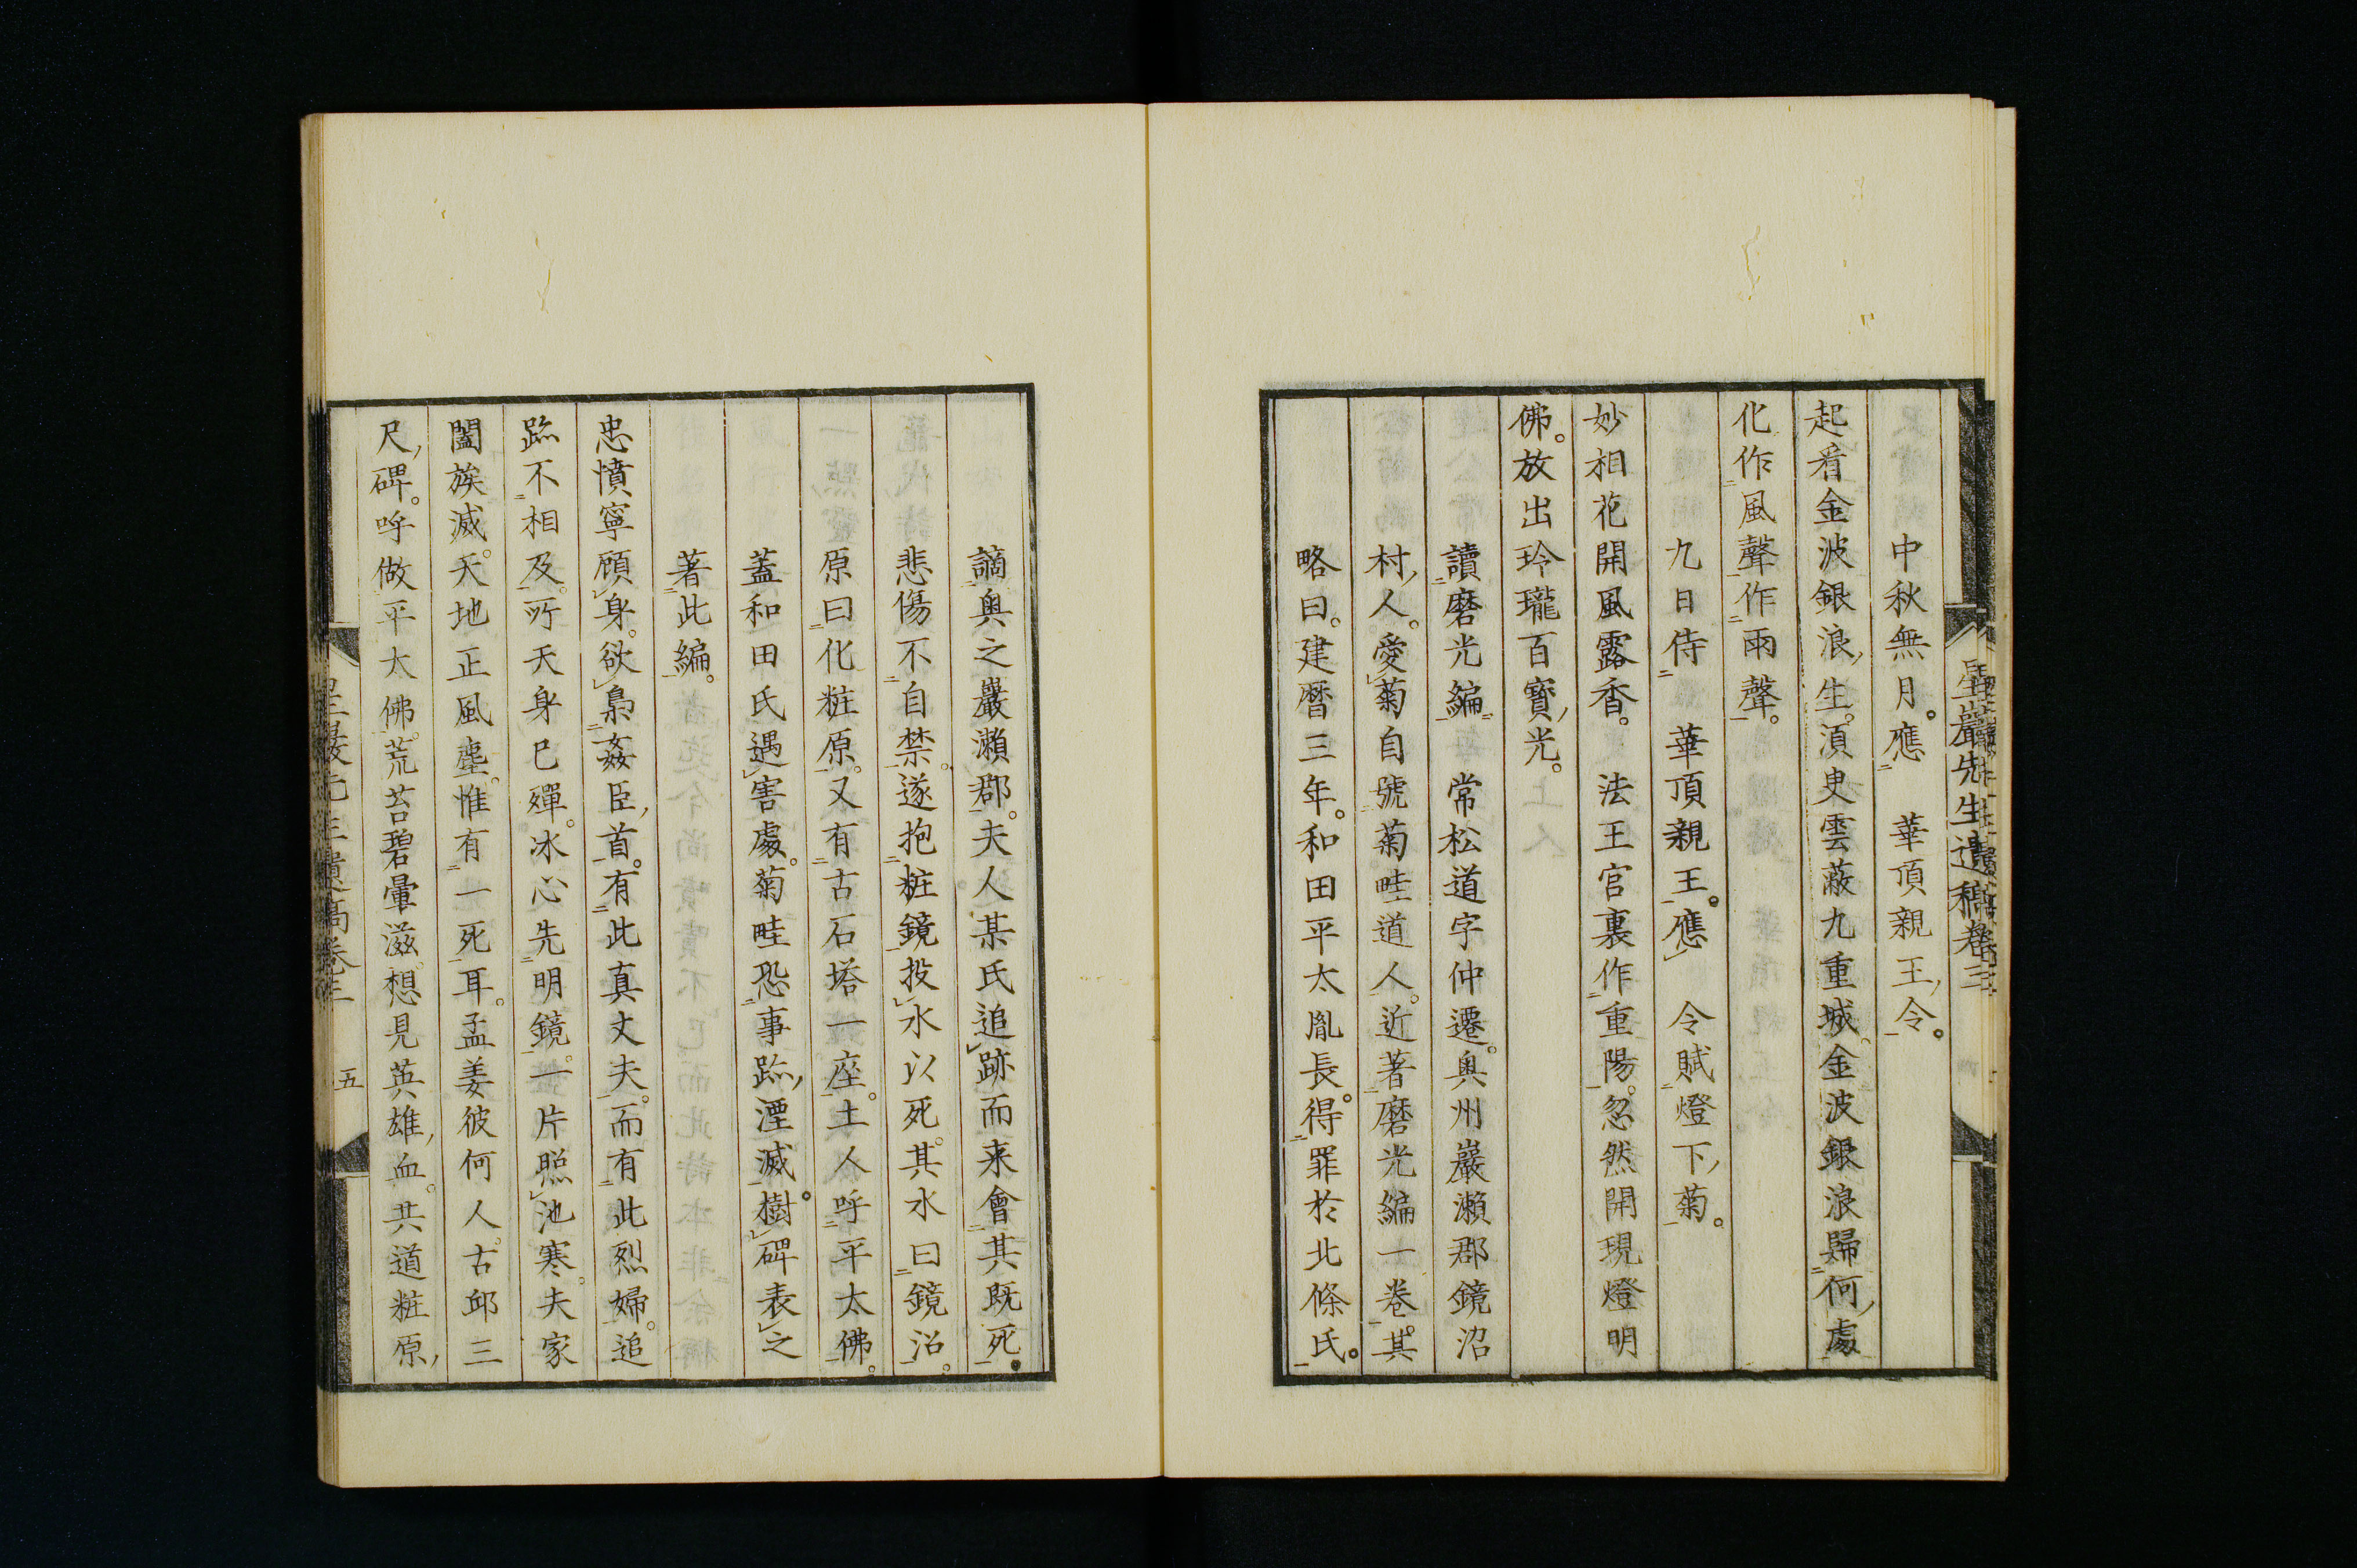 星巖先生遺稿卷三
中秋無月。應　華頂親王令。
起看金波銀浪生。須臾雲蔽九重城。金波銀浪歸何處
化作風聲作雨聲。
九日侍　華頂親王。應　令賦燈下菊。
妙相花開風露香。法王宮裏作重陽。忽然開現燈明
佛。放出玲瓏百寶光。
讀磨光編　常松道字仲遷。奥州巖瀨郡鏡沼
村人。愛菊自號菊畦道人。近著磨光編一卷。其
略曰。建曆三年。和田平太胤長。得罪於北條氏。
謫奥之巖瀨郡。夫人某氏追跡而来會其既死。
悲傷不自禁。遂抱粧鏡投水以死。其水曰鏡沼。
原曰化粧原。又有古石塔一座。土人呼平太佛。
蓋和田氏遇害處。菊畦恐事跡湮滅。樹碑表之
著此編。
忠憤寧顧身。欲梟姦臣首。有此真丈夫。而有此烈婦。追
跡不相及。所天身已殫。冰心先明鏡。一片照池寒。夫家
闔族滅。天地正風塵。惟有一死耳。孟姜彼何人。古邱三
尺碑。呼做平太佛。荒苔碧暈滋。想見英雄血。共道粧原
五